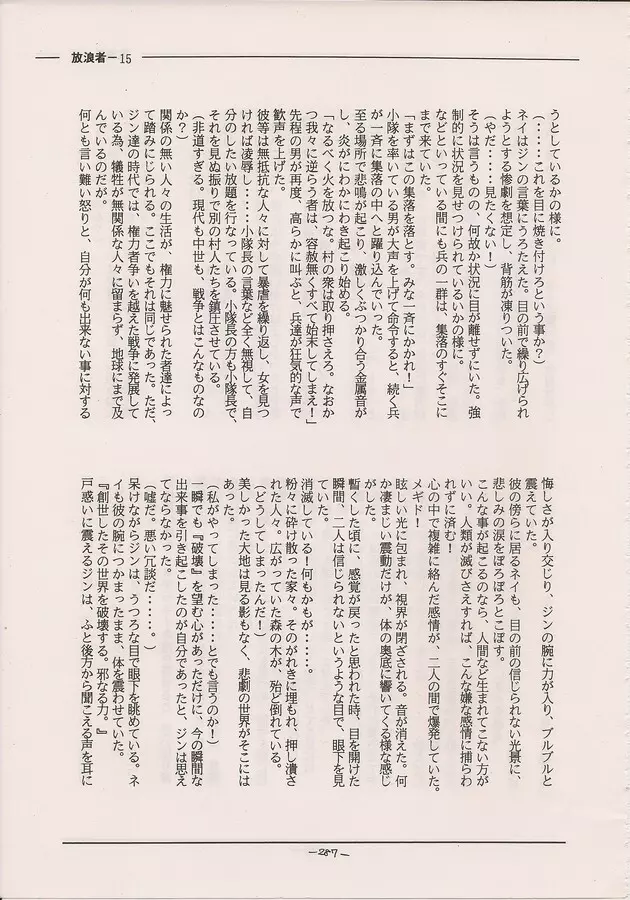 放浪者－15
うとしているかの様に。
（‥‥これを目に焼き付けろという事か？）
ネイはジンの言葉にうろたえた。目の前で繰り広げられ
ようとする惨劇を想定し、背筋が凍りついた。
（やだ‥‥見たくない！）
そうは言うものの、何故か状況に目が離せずにいた。強
制的に状況を見せつけられているいかの様に。
などといっている間にも兵の一群は、集落のすぐそこに
まで来ていた。
「まずはこの集落を落とす。みな一斉にかかれ！」
小隊を率いている男が大声を上げて命令すると、続く兵
が一斉に集落の中へと躍り込んでいった。
至る場所で悲鳴が起こり、激しくぶっかり合う金属音が
し、炎がにわかにわき起こり始める。
「なるべく火を放つな。村の衆は取り押さえろ。なおか
つ我々に逆らう者は、容赦無くすべて始末してしまえ！」
先程の男が再度、高らかに叫ぶと、兵達が狂気的な声で
歓声を上げた。
彼等は無抵抗な人々に対して暴虐を繰り返し、女を見つ
ければ凌辱し‥‥小隊長の言葉など全く無視して、自
分のしたい放題を行なっている。小隊長の方も小隊長で、
それを見ぬ振りで別の村人たちを鎮圧させている。
（非道すぎる。現代も中世も、戦争とはこんなものなの
か？）
関係の無い人々の生活が、権力に魅せられた者達によっ
て踏みにじられる。ここでもそれは同じであった。ただ、
ジン達の時代では、権力者争いを越えた戦争に発展して
いる為、犠牲が無関係な人々に留まらず、地球にまで及
んでいるのだが。
何とも言い難い怒りと、自分が何も出来ない事に対する
悔しさが入り交じり、ジンの腕に力が入り、ブルブルと
震えていた。
彼の傍らに居るネイも、目の前の信じられない光景に、
悲しみの涙をぽろぽろとこぼす。
こんな事が起こるのなら、人間など生まれてこない方が
いい。人類が滅びさえすれば、こんな嫌な感情に捕らわ
れずに済む！
心の中で複雑に絡んだ感情が、二人の間で爆発していた。
メギド！
眩しい光に包まれ、視界が閉ざされる。音が消えた。何
か凄まじい震動だけが、体の奥底に響いてくる様な感じ
がした。
暫くした頃に、感覚が戻ったと思われた時、目を開けた
瞬間、二人は信じられないというような目で、眼下を見
ていた。
消滅している！何もかもが‥‥。
粉々に砕け散った家々。そのがれきに埋もれ、押し潰さ
れた人々。広がっていた森の木が、殆ど倒れている。
（どうしてしまったんだ！）
美しかった大地は見る影もなく、悲劇の世界がそこには
あった。
（私がやってしまった‥‥とでも言うのか！）
一瞬でも『破壊』を望む心があっただけに、今の瞬間な
出来事を引き起こしたのが自分であったと、ジンは思え
てならなかった。
（嘘だ。悪い冗談だ‥‥。）
呆けながらジンは、うつろな目で眼下を眺めている。ネ
イも彼の腕につかまったまま、体を震わせていた。
『創世したその世界を破壊する。邪なる力。』
戸惑いに震えるジンは、ふと後方から聞こえる声を耳に
－287－